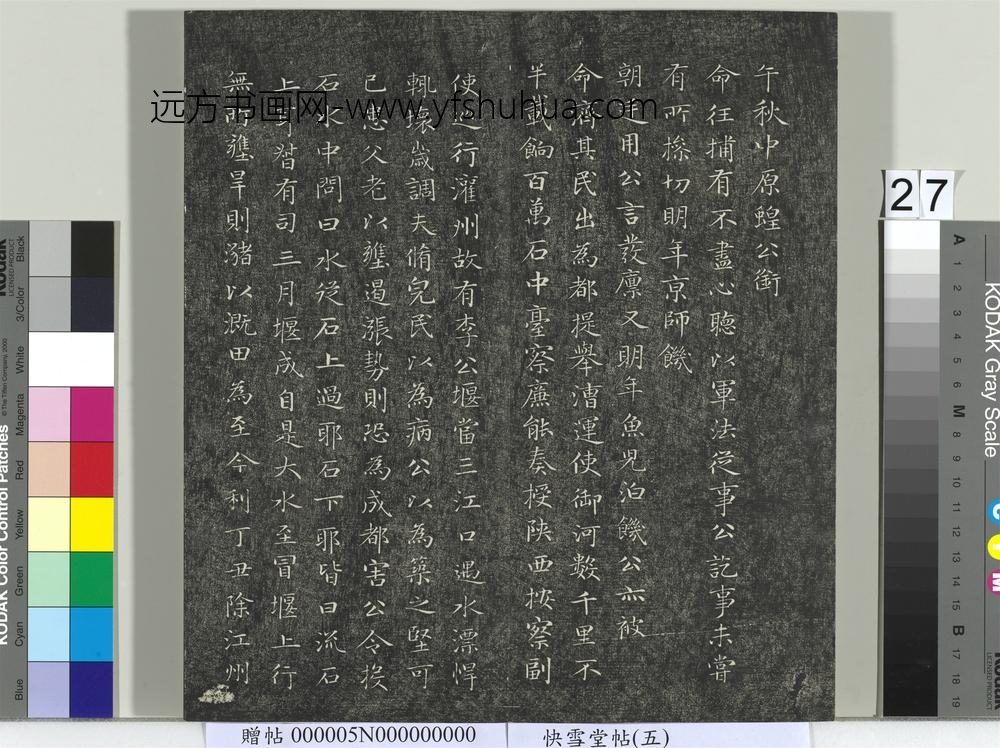 午秋中原蝗公銜
命往捕有不盡心聽以軍法從事公訖事未嘗
有所搒切明年京師饑
朝廷用公言發廪又明年魚兒泊饑公亦被
命濟其民出為都提舉漕運使御河數千里不
半載餉百萬石中臺察廉能奏授陝西按察副
使巡行灌州故有李公堰當三江口遇水漂悍
輒壞歲調夫脩完民以為病公以為築之堅可
已患父老以壅遏漲勢則恐為成都害公令投
石水中問曰水從石上過耶石下耶皆曰流石
上 有司三月堰成自是大水至冒堰上行
無所壅旱則潴以溉田為至今利丁丑除江州
远方书画网-www.yfshuhua.com
27
贈帖 000005N000000000
快雪堂帖(五)
KODAK Color Control Patches
© The Tiffen Company, 2000
Kodak
LICENSED PRODUCT
Blue
Cyan
Green
Yellow
Red
Magenta
White
3/Color
Black
KODAK Gray Scale
A 1 2 3 4 5 6 M 8 9 10 11 12 13 14 15 B 17 18 19
C
Y
M
Kodak
LICENSED PRODUCT